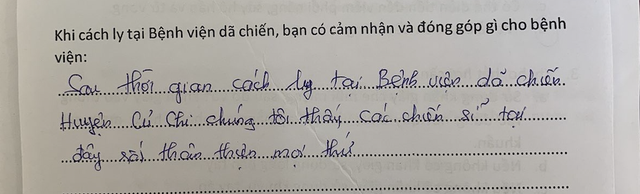 Khi cách ly tại Bệnh viện dã chiến, bạn có cảm nhận và đóng góp gì cho bệnh
viện:
Sau thời gian cách ly tại Bệnh viện dã chiến
Huyện Củ Chi chúng tôi thấy các chiến sĩ tại
đây rất thân thiện mọi thứ